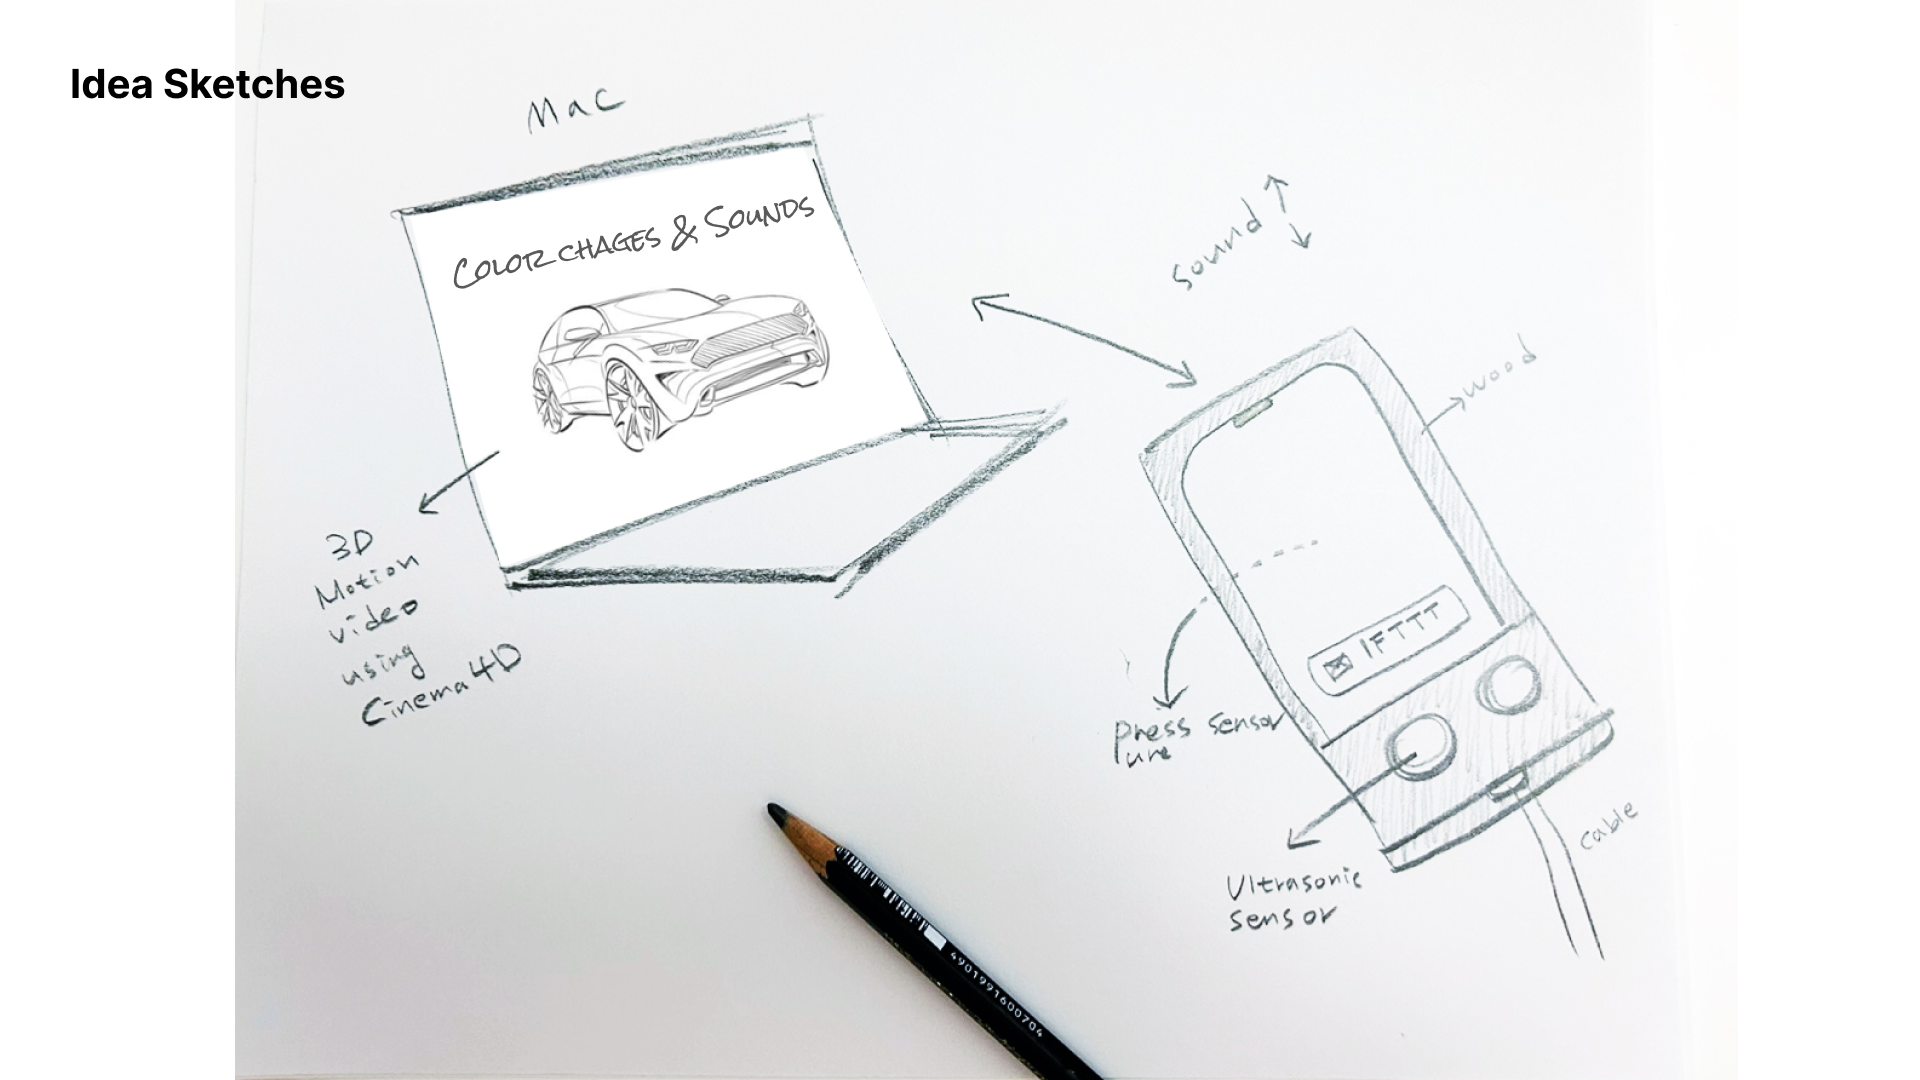 Idea Sketches
Mac
COLOR CHAGES & SOUNDS
3D
Motion
video
using
Cinema 4D
Sound
wood
IFTTT
Press sensor
ure
Ultrasonic
sensor
cable
4901991600704